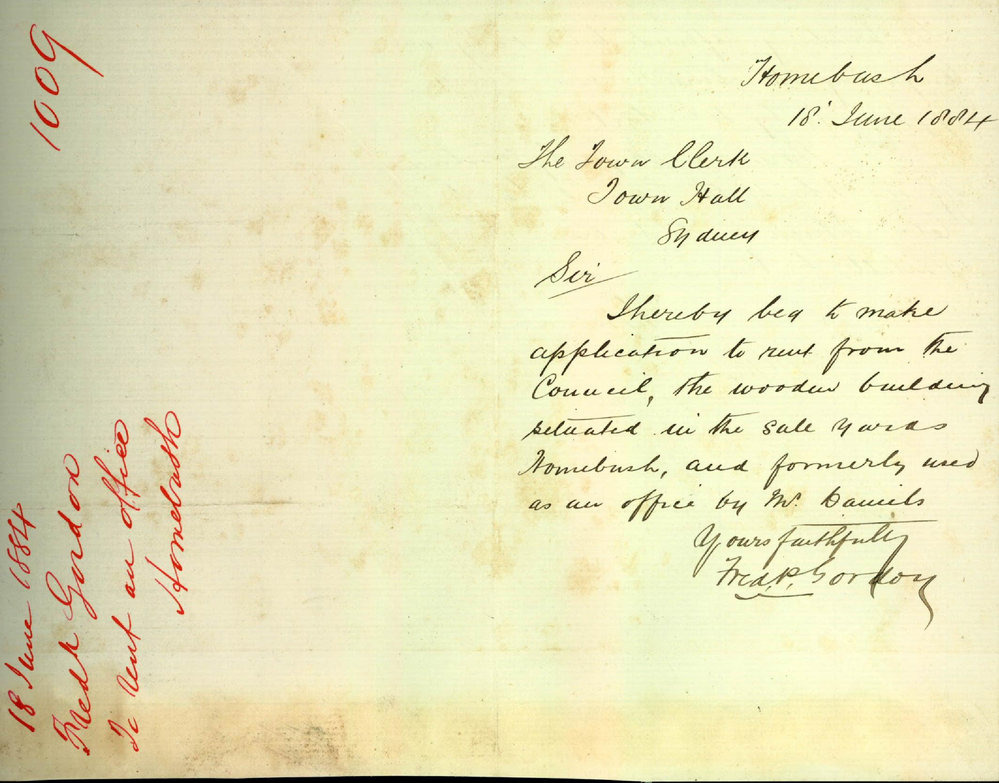 1009
18 June 1884
Fredk Gordon
To rent an office
Homebush
Homebush
18' June 1884
The Town Clerk
Town Hall
Sydney
Sir
I hereby beg to make
application to rent from the
Council, the wooden building
situated in the Sale Yards
Homebush, and formerly used
as an office by Mr. Daniels
Yours faithfully
Fredk. Gordon